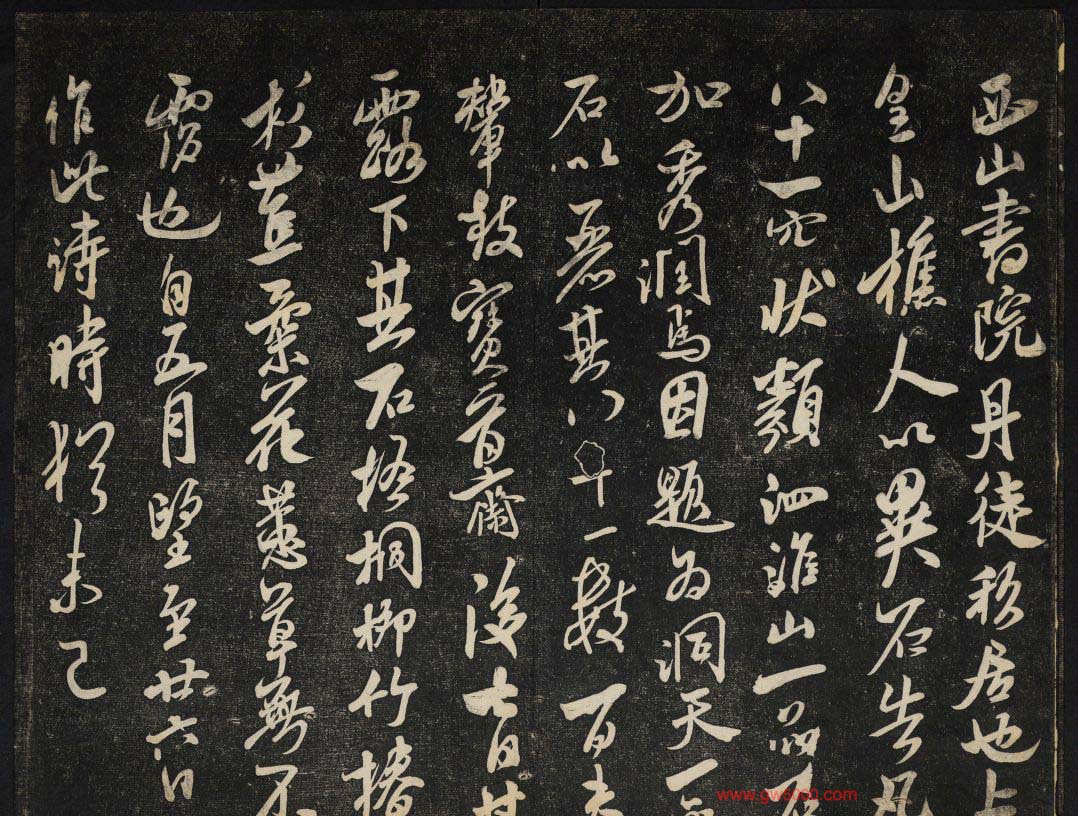 西山書院丹徒私居也上
皇山樵人以異石告凡
八十一穴狀類泗淮山一品石
加秀潤焉因題為洞天一品
石以其八十一數百夫
輦致寶晉齋後七日甘
露下其石梧桐柳竹椿
杉花蕙草無不
也自五月望至廿六日
作此詩時猶未已
www.gw8000.com